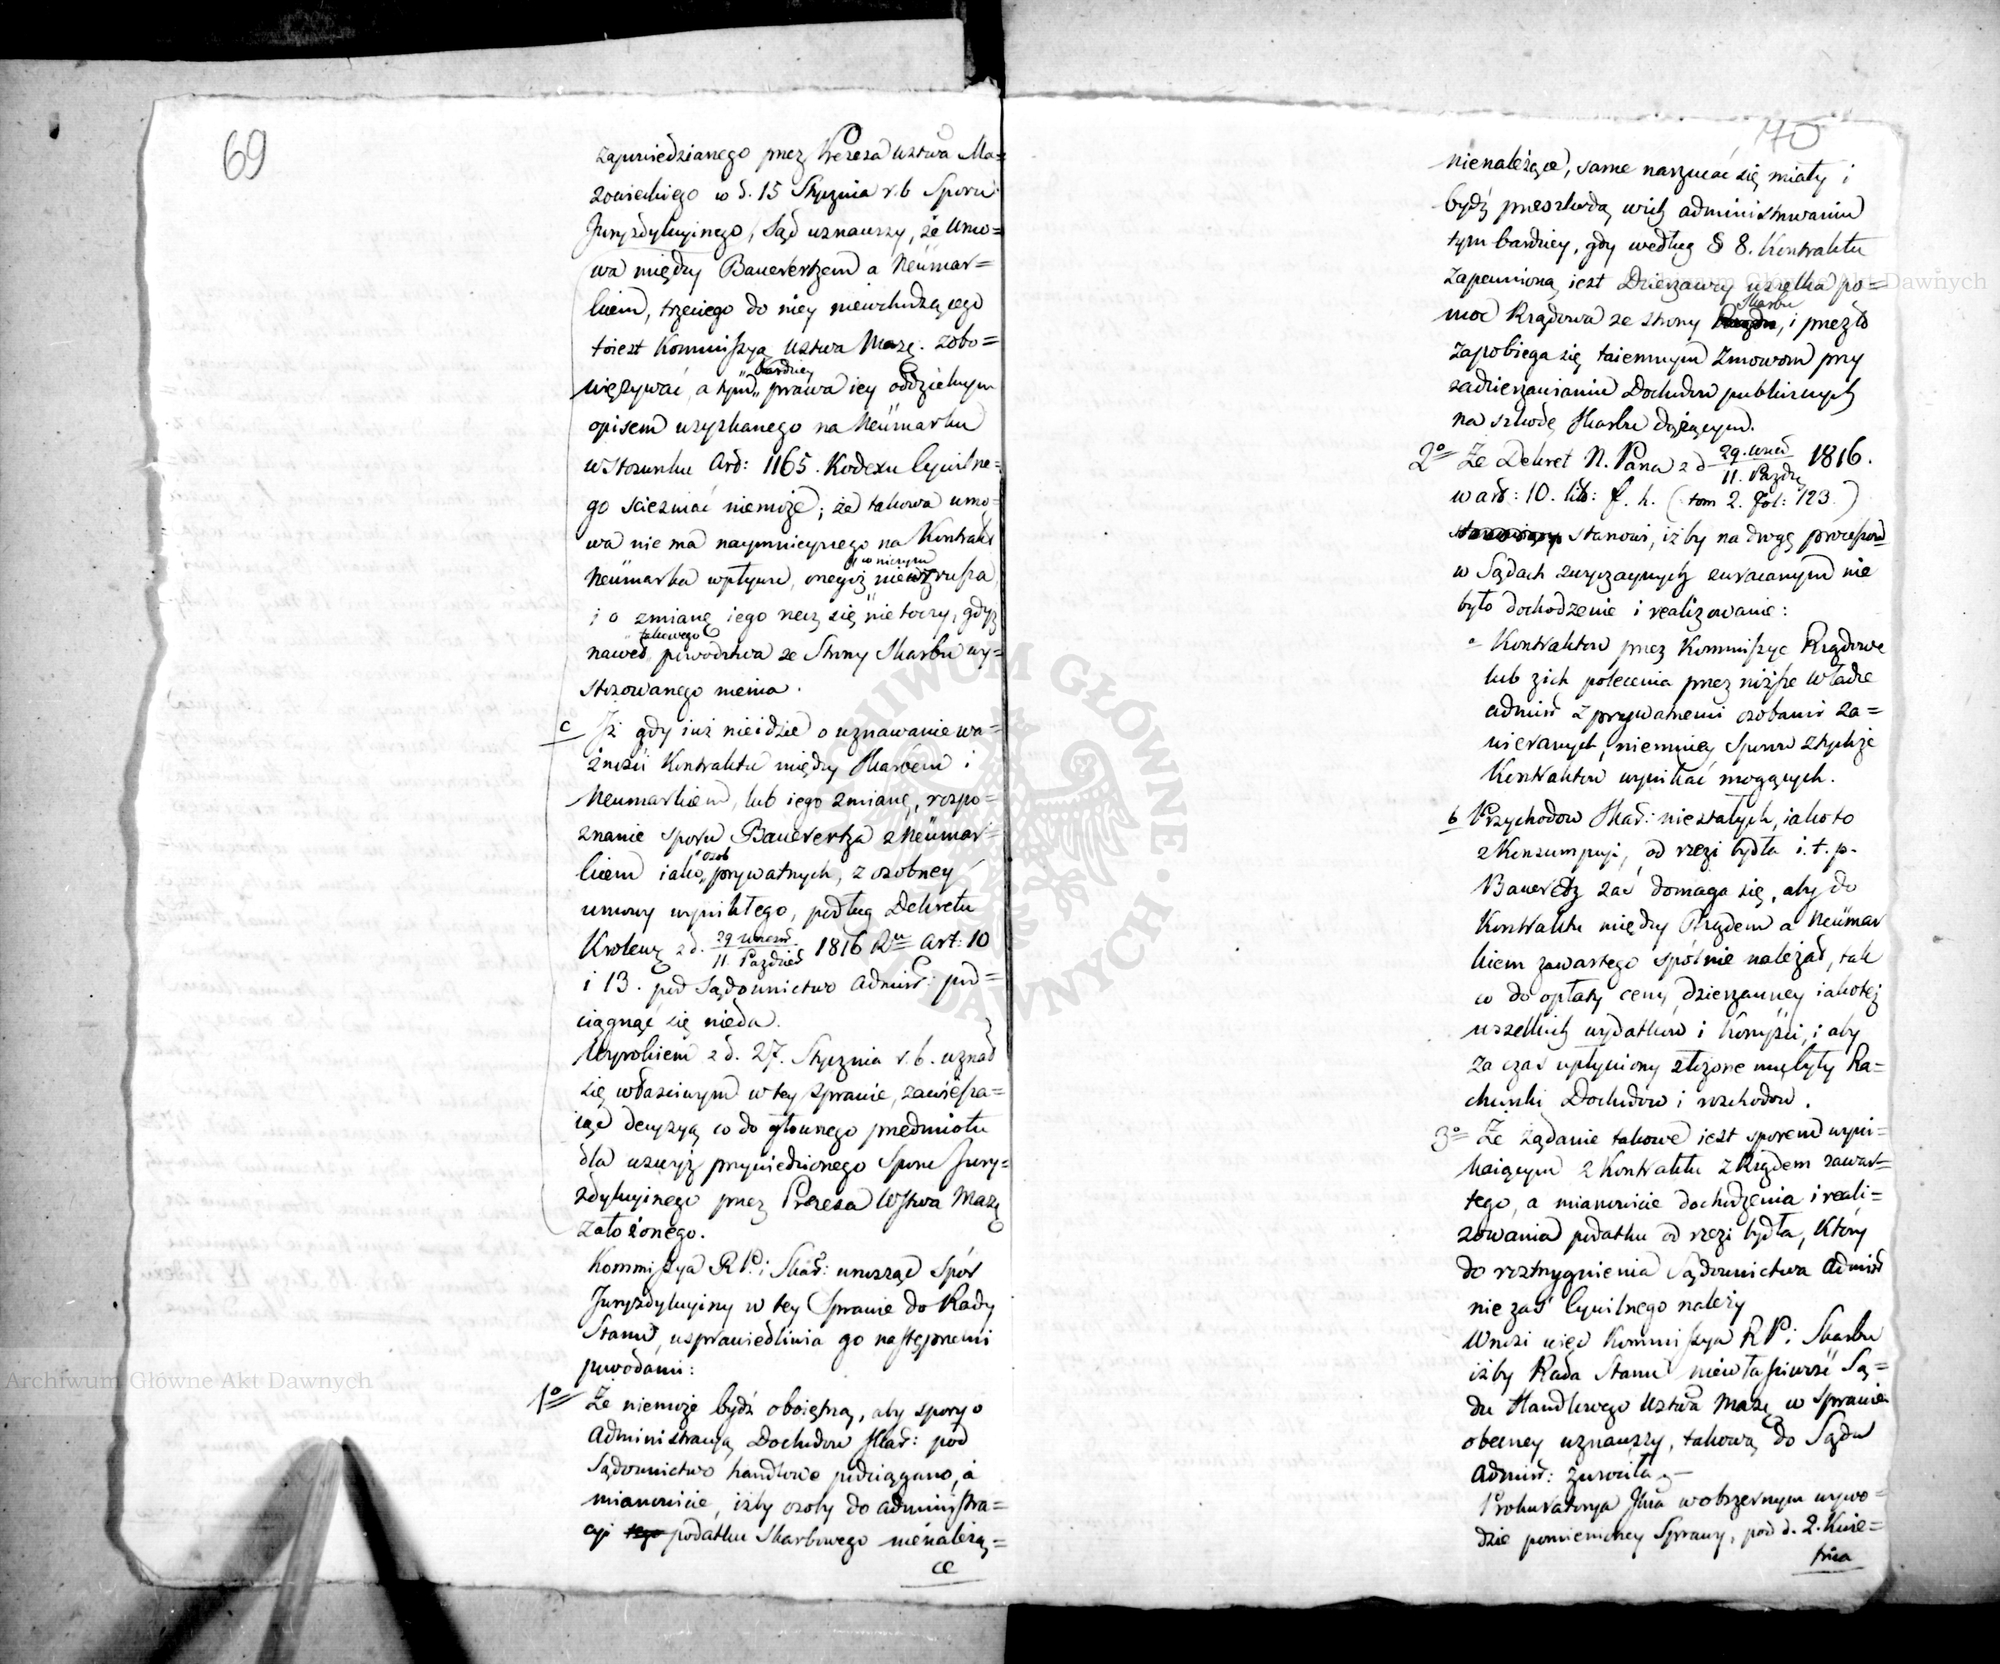 69
zapowiedzianego przez Prezesa Wztwa Ma=
zowieckiego w d. 15 Stycznia r. b Sporu
Juryzdykcyinego, Sąd uznawszy, że umo=
wa między Bauerertzem a Neümar=
kiem, trzeciego do niey niewchodzącego
toiest Kommissyą Wztwa Maz. zobo=
więzywać, a tym bardziey prawa iey oddzielnym
opisem uzyskanego na Neümarku
w stosunku Art: 1165. Kodexu Cywilne=
go ścieśniać niemoże; że takowa umo=
wa nie ma naymnieyszego na Kontrakt
Neümarka wpływu, onegoż w niczym niewzrusza
i o zmianę iego rzecz się nie toczy, gdyż
nawet takowego powodztwa ze Strony Skarbu wy=
stosowanego niema.
c Iż gdy iuż nieidzie o uznawanie wa=
żności Kontraktu między Skarbem i
Neumarkiem, lub iego zmianę, rozpo=
znanie sporu Bauerertza z Neümar=
kiem iako osob prywatnych, z osobney
umowy wynikłego, podług Dekretu
Krolews z d. 29 Wrześ / 11. Paździer 1816 Ru Art: 10
i 13. pod Sądownictwo Admin: pod=
ciągnąć się nieda.
Wyrokiem z d. 27. Stycznia r. b. uznał
się właściwym w tey sprawie, zawiesza=
iąc decyzyą co do głównego przedmiotu
dla uzucyi przywiedzionego Sporu Jury=
zdykcyinego przez Prezesa Wztwa Maz
założonego.
Kommissya R P. i Skar: wnosząc Spór
Juryzdykcyiny w tey Sprawie do Rady
Stanu, usprawiedliwia go następnemi
powodami:
1o Że niemoże bydź oboiętną, aby spory o
Administracyą Dochodow Skar: pod
Sądownictwo handlowe podciągano, a
mianowicie, iżby osoby do administra=
cyi podatku Skarbowego nienależą=
ce
70
nienależące, same narzucać się miały i
bydź przeszkodą w ich administrowaniu
tym bardziey, gdy według § 8. Kontraktu
zapewnioną iest Dzierzawcy wszelka po=
moc Rządowa ze strony Skarbu, i przez to
zapobiega się taiemnym zmowom przy
zadzierzawianiu Dochodow publicznych
na szkodę Skarbu dążącym.
2o Że Dekret N. Pana z d 29. Wrześ / 11. Paźdz 1816.
w art: 10. lit: f. h. (tom 2. fol: 123.)
stanowi, iżby na drogę processow
w Sądach zwyczaynych zwracanym nie
było dochodzenie i realizowanie:
a Kontraktow przez Kommissye Rządowe
lub z ich polecenia przez niższe Władze
admin z prywatnemi osobami za=
wieranych, niemniey Sporow z tychże
Kontraktow wynikać mogących.
b Przychodow Skar: niestałych, iako to
z Konsumpcyi, od rzezi bydła i. t. p.
Bauerertz zaś domaga się, aby do
Kontraktu między Rządem a Neümar
kiem zawartego spólnie należał, tak
co do opłaty ceny dzierzawney iakoteż
wszelkich wydatków i korzyści, i aby
za czas upłyniony złożone mu były Ra=
chunki Dochodow i rozchodow.
3o Że żądanie takowe iest sporem wyni=
kaiącym z Kontraktu z Rządem zawar=
tego, a mianowicie dochodzenia i reali=
zowania podatku od rzezi bydła, który
do roztrzygnienia Sądownictwa Admin
nie zaś Cywilnego należy
Wnosi więc Kommissya R P. i Skarbu
iżby Rada Stanu niewłaściwość Są=
du Handlowego Wztwa Maz w Sprawie
obecney uznawszy, takową do Sądu
Admin: zwróciła.
Prokuratorya Jlna w obszernym wywo=
dzie pomienioney Sprawy, pod d. 2. Kwie=
tnia
Archiwum Główne Akt Dawnych
Archiwum Główne Akt Dawnych
ARCHIWUM GŁÓWNE AKT DAWNYCH